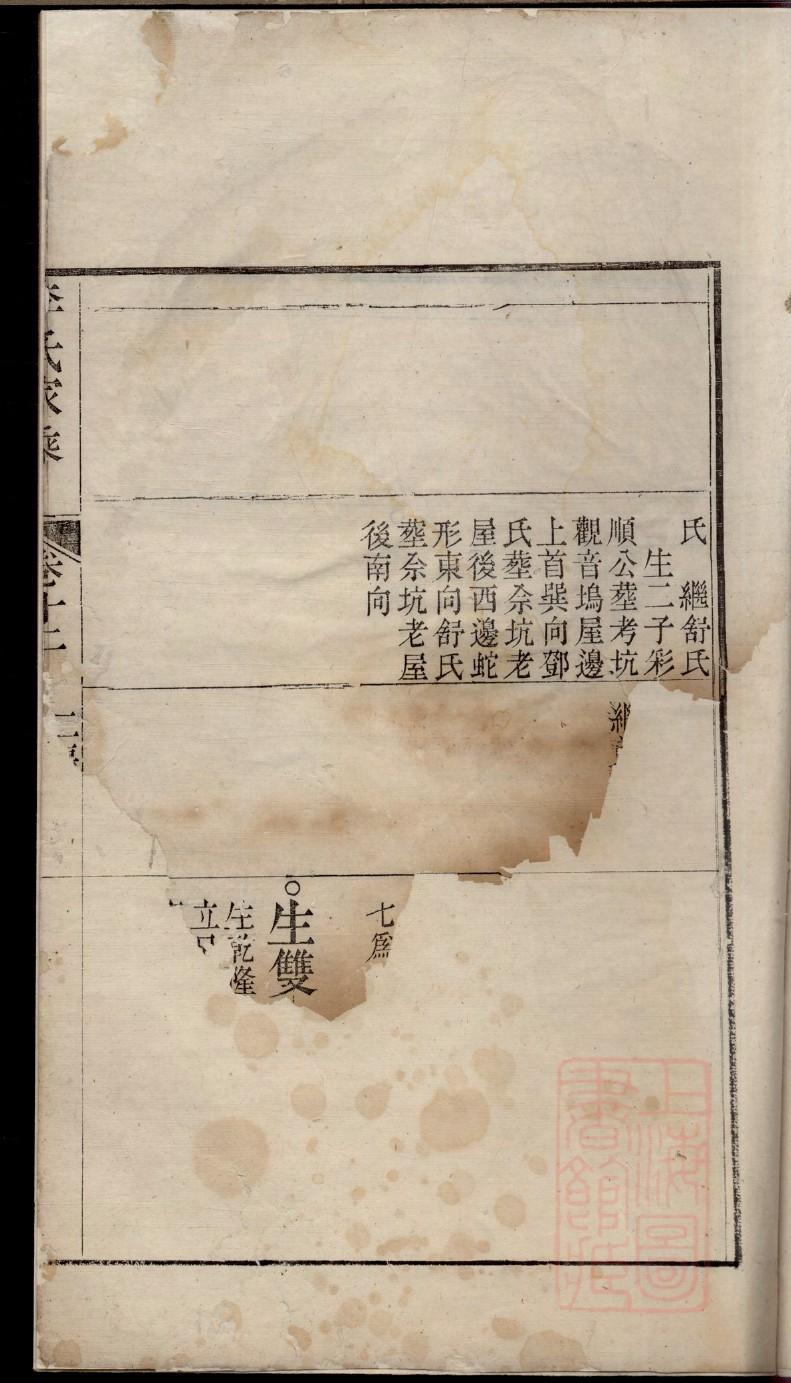 氏　繼舒氏
生二子彩
順公塟考坑
觀音塢屋邊
上首巽向鄧
氏塟佘坑老
屋後西邊蛇
形東向舒氏
塟佘坑老屋
後南向
繼
七爲
○生雙
生乾隆
立
李氏家乘
卷十二
上海圖
書館藏